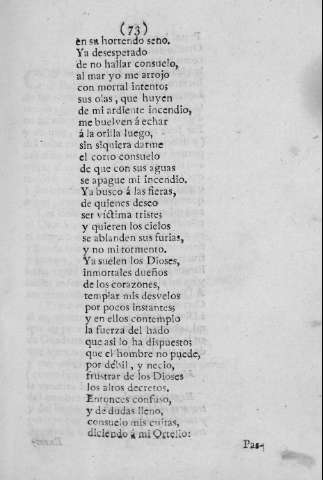 (73)
en su horrendo seno.
Ya desesperado
de no hallar consuelo,
al mar yo me arrojo
con mortal intento;
sus olas, que huyen
de mi ardiente incendio,
me buelven á echar
á la orilla luego,
sin siquiera darme
el corto consuelo
de que con sus aguas
se apague mi incendio.
Ya busco á las fieras,
de quienes deseo
ser víctima triste;
y quieren los cielos
se ablanden sus furias,
y no mi tormento.
Ya suelen los Dioses,
inmortales dueños
de los corazones,
templar mis desvelos
por pocos instantes;
y en ellos contemplo
la fuerza del hado
que asi lo ha dispuesto;
que el hombre no puede,
por débil, y necio,
frustrar de los Dioses
los altos decretos.
Entonces confuso,
y de dudas lleno,
consuelo mis cuitas,
diciendo á mi Ortelio:
Pas-